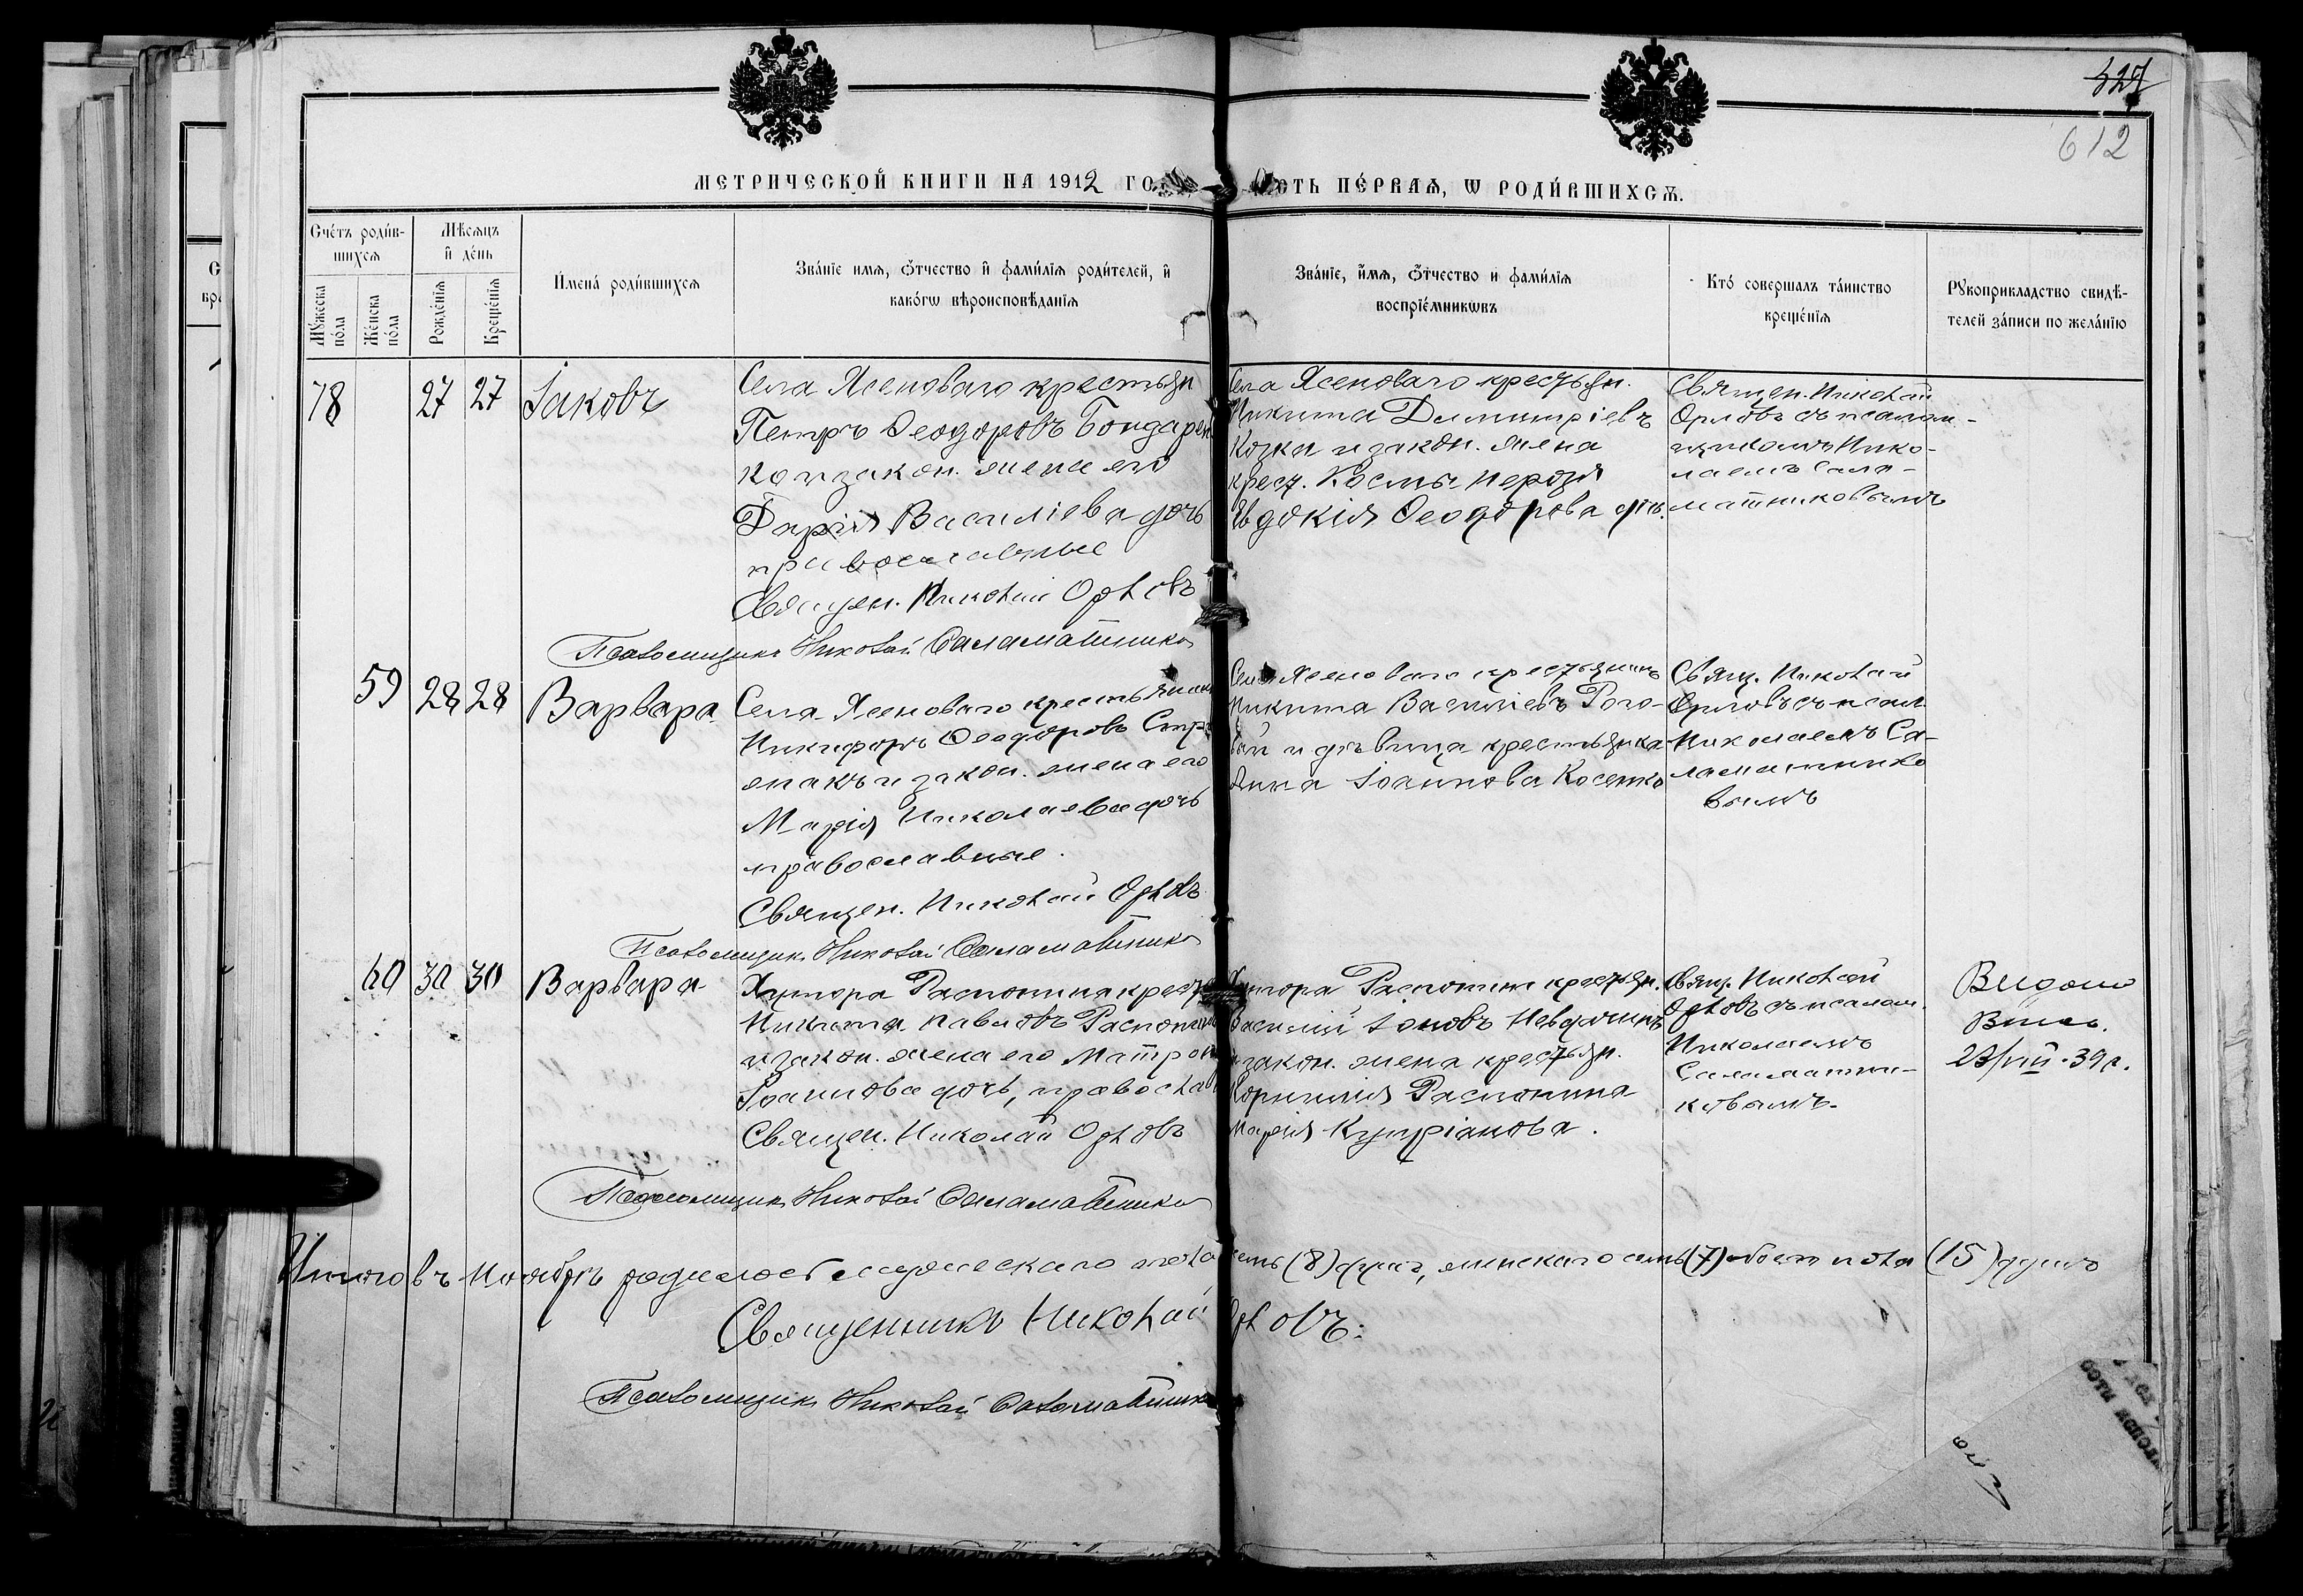 327
612
МЕТРИЧЕСКОЙ КНИГИ НА 1912 ГО
СТЬ ПЕ́РВАѦ, Ѡ РОДИ́ВШИХСѦ.
Счéтъ роди́в-
шихсѧ
Мꙋ́жеска
по́ла
Же́нска
по́ла
Мѣ́сѧцъ
и҆ де́нь
Рожде́нїѧ
Креще́нїѧ
И҆мена̀ роди́вшихсѧ
Зва́нїе имѧ, ѻ҆́тчество и҆ фами́лїѧ роди́телей, и҆
како́гѡ вѣроисповѣ́данїѧ
Зва́нїе, и҆́мѧ, ѻ҆́тчество и фами́лїѧ
воспрїе́мникѡвъ
Кто́ совершалъ та́инство
креще́нїѧ
Рꙋкоприкладство свидѣ́-
телей за́писи по жела́нїю
78
27 27 Іаковъ
Села Ясеноваго крестьян
Петръ Ѳеодоровъ Бондарен
ко и закон. жена его
Дарія Василіева дочь
православные
Священ. Николай Орловъ
Псаломщикъ Николай Саламатнико
Села Ясеноваго крестьян.
Никита Димитріевъ
Козка и закон. жена
крест. Космы
Евдокія Ѳеодорова
Священ. Николай
Орловъ съ псалом-
щикомъ Нико-
лаемъ Сала-
матниковымъ
59 28 28 Варвара
Села Ясеноваго крестьянин
Никифоръ Ѳеодоровъ
и закон. жена его
Марія Николаева дочь
православные.
Священ. Николай Орловъ
Псаломщикъ Николай Саламатнико
Села Ясеноваго крестьянинъ
Никита Василіевъ Рого-
вый и дѣвица крестьянка
Анна Іоаннова Косенко
Свящ. Николай
Орловъ съ псал.
Николаемъ Са-
ламатнико
вымъ
60 30 30 Варвара
Хутора Распопина крест
Никита Павловъ Распопин
и закон. жена его Матрон
Іоаннова дочь, православ
Священ. Николай Орловъ
Псаломщикъ Николай Саламатнико
Хутора Распопина крестьян.
Василій Іоновъ
и закон. жена крестьян.
Корнилія Распопина
Марія Купріанова.
Свящ. Николай
Орловъ съ псалом.
Николаемъ
Саламатни-
ковымъ.
Видано
23/VIII-39 г.
Итого въ Ноябрѣ родилось мужескаго пола
семь (8) душъ, женскаго семь (7) обоего пола (15) душъ
Священникъ Николай Орловъ:
Псаломщикъ Николай Саламатник